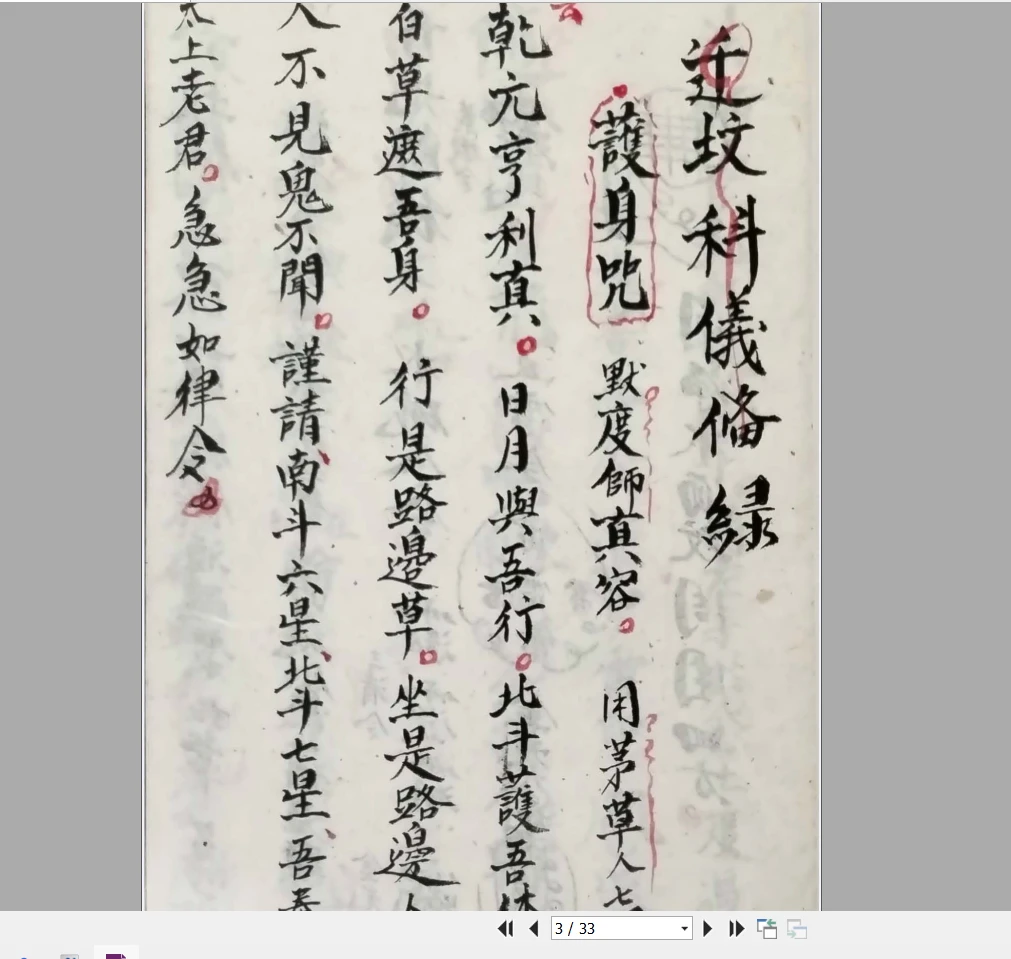 迁坟科儀俻緑
護身咒 默度師真容 用茅草人七
乾元亨利真 日月與吾行 北斗護吾体
白草遮吾身 行是路邊草 坐是路邊人
人不見鬼不聞 謹請南斗六星北斗七星吾奉
太上老君 急急如律令
3 / 33